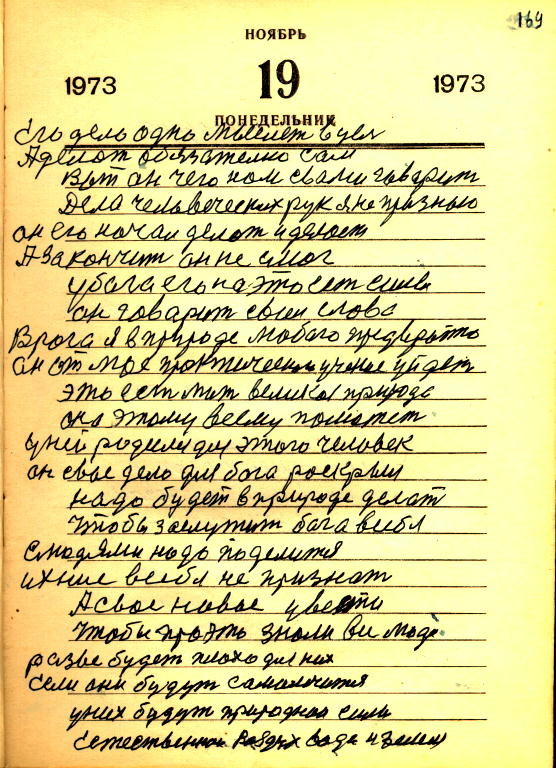 169
НОЯБРЬ
1973 19 1973
ПОНЕДЕЛЬНИК
Его дело одно мыслет
А делат обязателно сам
Вот он чего ном свами говарит
Дела человеческих рук я не признаю
он его начал делат и делает
А закончит он не смог
у бага его на это ест силы
он говарит свои слова
Врага я в природе любого
он от мое практическои учение уйдет
это ест мат великоя природа
она этому всему поможет
уней родился для этого человек
он свое дело для бога роскрыл
надо будет в природе делат
Чтобы заслужит бага в себя
Слюдями надо поделится
ихние всебя не признат
А свое новае увести
Чтобы про это знали все люди
разве будет плохо для них
Если они будут
у них будут природнои силы
Естественнои воздух вода и земля